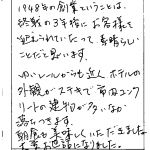 1948年の創業ということは、
終戦の3年後にお客様を
迎えられていたって素晴らしい
ことだと思います。
ゆいレールからも近く ホテルの
外観がステキで 市内コンク
リートの建物が多いなか
落ちつきます。
朝食も美味しくいただきました。
大変お世話になりました。